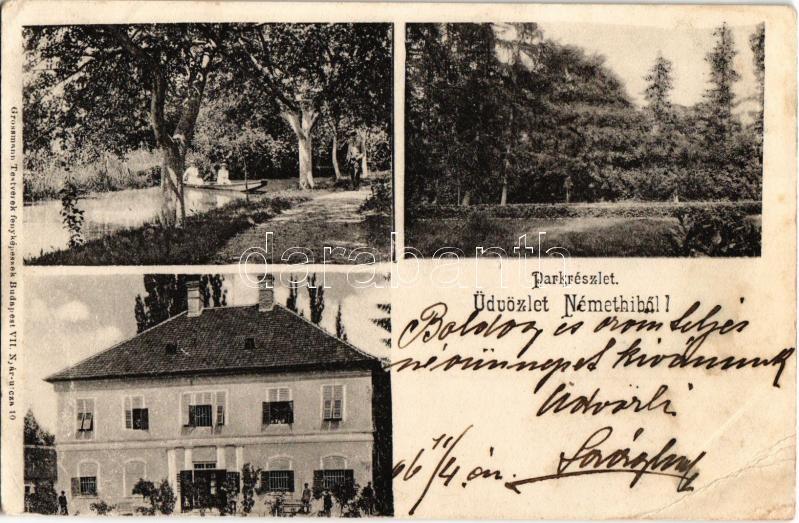 Grossmann Testvérek fényképészek Budapest VII. Nyár-utcza 10
darabanth
Parkrészlet.
Üdvözlet Némethiből!
Boldog és örömteljes
névünnepet kivánunk
Üdvözli